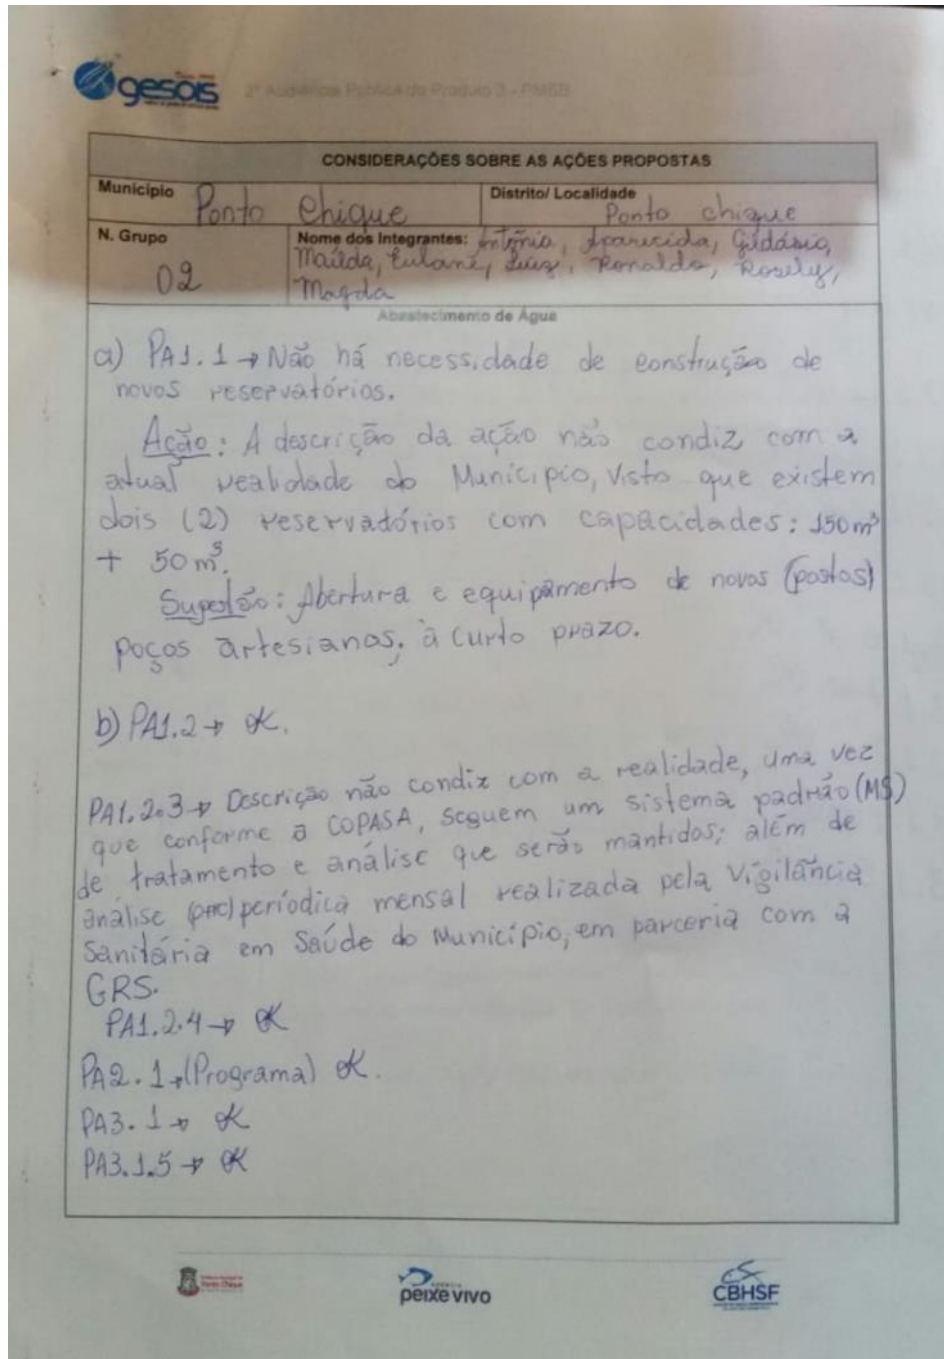 gesois
2ª Audiência Pública do Produto 3 - PMSB
CONSIDERAÇÕES SOBRE AS AÇÕES PROPOSTAS
Município Ponto Chique
Distrito/ Localidade Ponto chique
N. Grupo 02
Nome dos Integrantes: Antônia, Aparecida, Gildásio,
Maílda, Luiz, Ronaldo, Rosely,
Magda
Abastecimento de Água
a) PA1.1 → Não há necessidade de construção de
novos reservatórios.
Ação: A descrição da ação não condiz com a
atual realidade do Município, visto que existem
dois (2) reservatórios com capacidades: 150m³
+ 50m³.
Sugestão: Abertura e equipamento de novos (postos)
poços artesianos, à curto prazo.
b) PA1.2 → OK.
PA1.2.3 → Descrição não condiz com a realidade, uma vez
que conforme a COPASA, seguem um sistema padrão (MS)
de tratamento e análise que serão mantidos; além de
análise periódica mensal realizada pela Vigilância
Sanitária em Saúde do Município, em parceria com a
GRS.
PA1.2.4 → OK
PA2.1 → (Programa) OK.
PA3.1 → OK
PA3.1.5 → OK
Ponto Chique
AGÊNCIA
peixe vivo
CBHSF